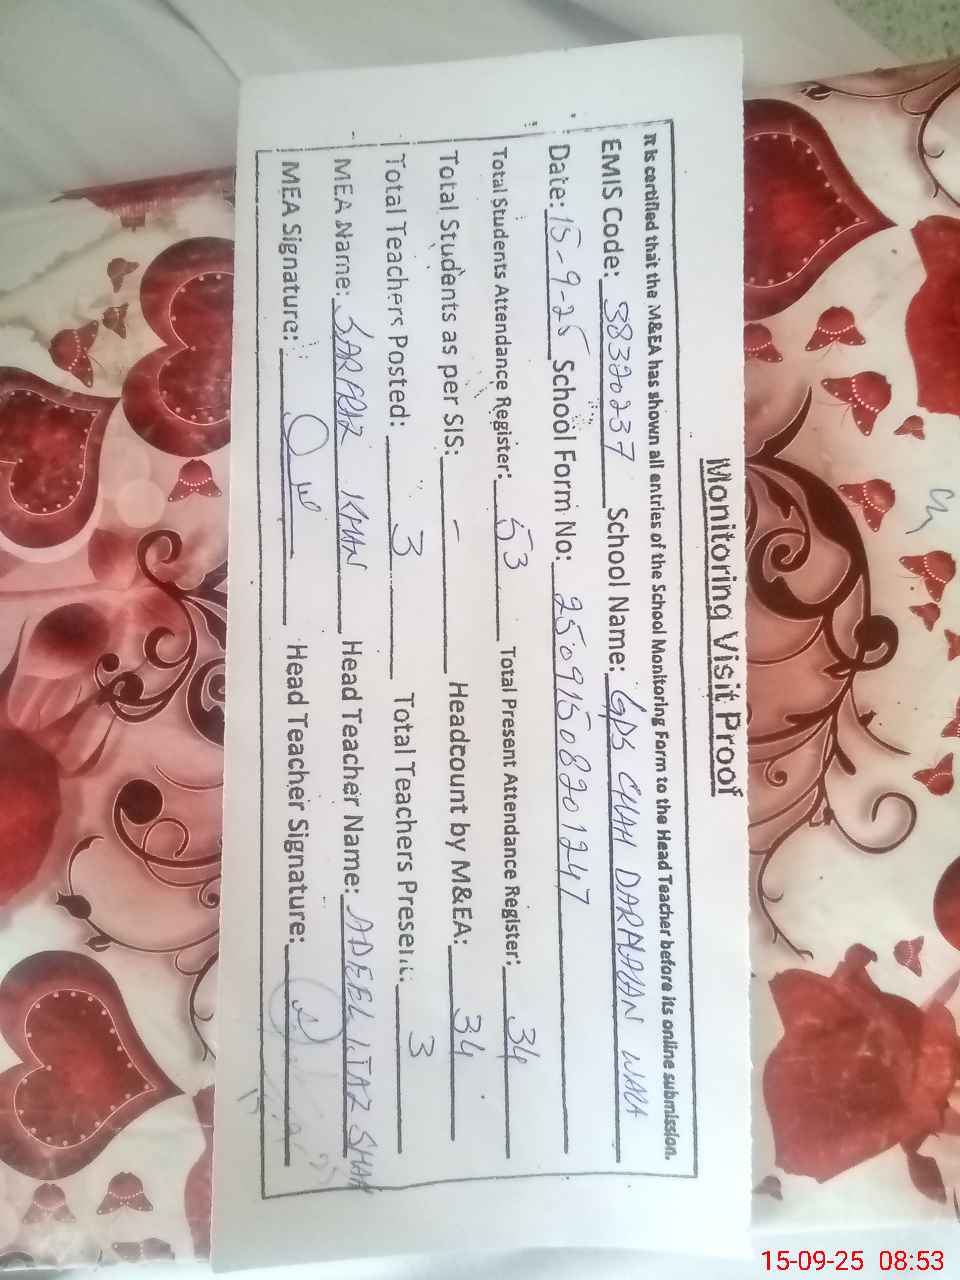 Monitoring Visit Proof
It is certified that the M&EA has shown all entries of the School Monitoring Form to the Head Teacher before its online submission.
EMIS Code: 38320237 School Name: GPS CHAH DARMAN WALA
Date: 15-9-25 School Form No: 25091508201247
Total Students Attendance Register: 53 Total Present Attendance Register: 34
Total Students as per SIS: - Headcount by M&EA: 34
Total Teachers Posted: 3 Total Teachers Present: 3
MEA Name: SARFRAZ KHAN Head Teacher Name: SHAH
MEA Signature: Head Teacher Signature:
15-09-25 08:53